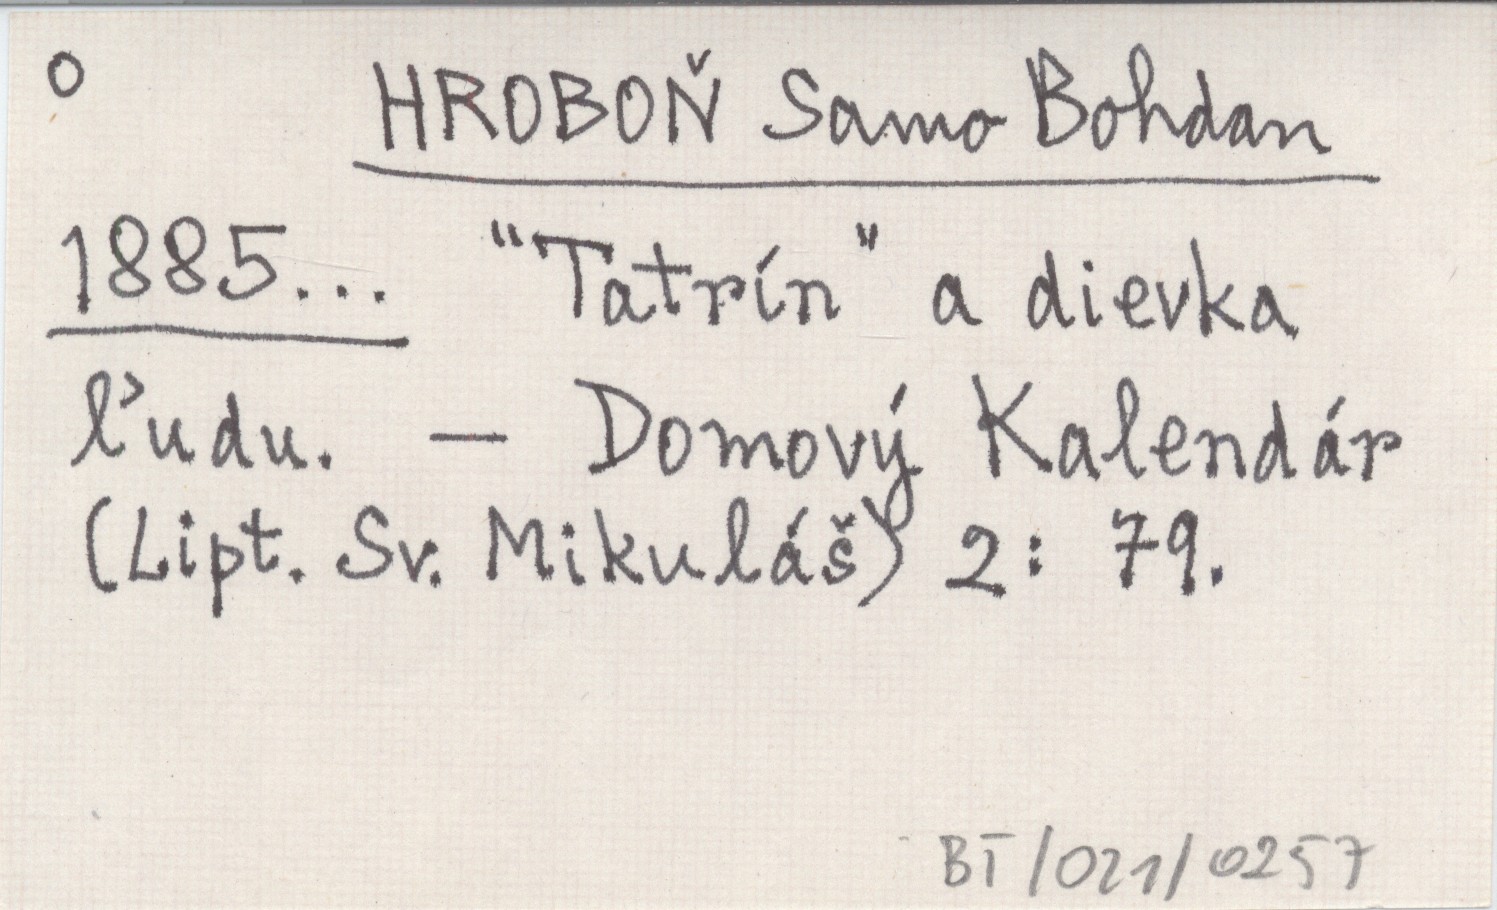 o HROBOŇ Samo Bohdan
1885... "Tatrín" a dievka
ľudu. — Domový Kalendár
(Lipt. Sv. Mikuláš) 2: 79.
BT/021/0257